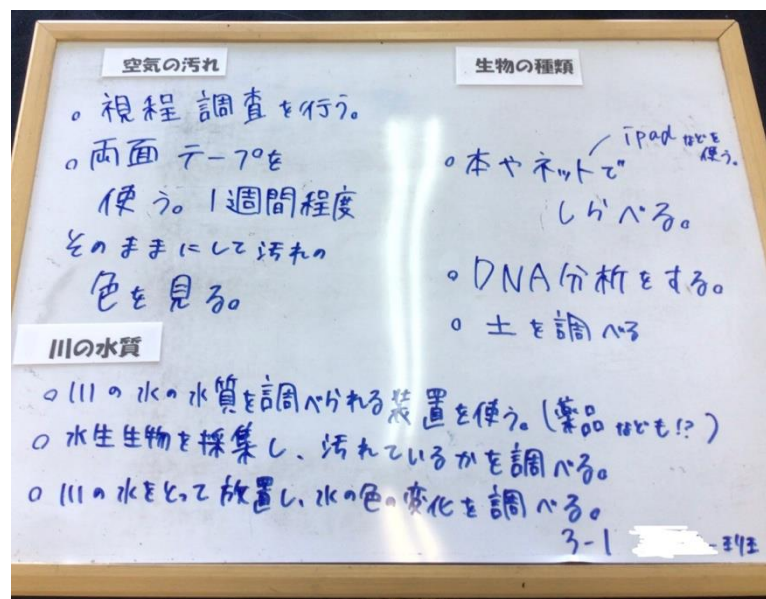 空気の汚れ
○ 視程調査を行う。
○ 両面テープを
使う。1週間程度
そのままにして汚れの
色を見る。
生物の種類
○ 本やネットで
ipadなどを
使う。
しらべる。
○ DNA分析をする。
○ 土を調べる
川の水質
○ 川の水の水質を調べられる装置を使う。(薬品なども!?)
○ 水生生物を採集し、汚れているかを調べる。
○ 川の水をとって放置し、水の色の変化を調べる。
3-1 班